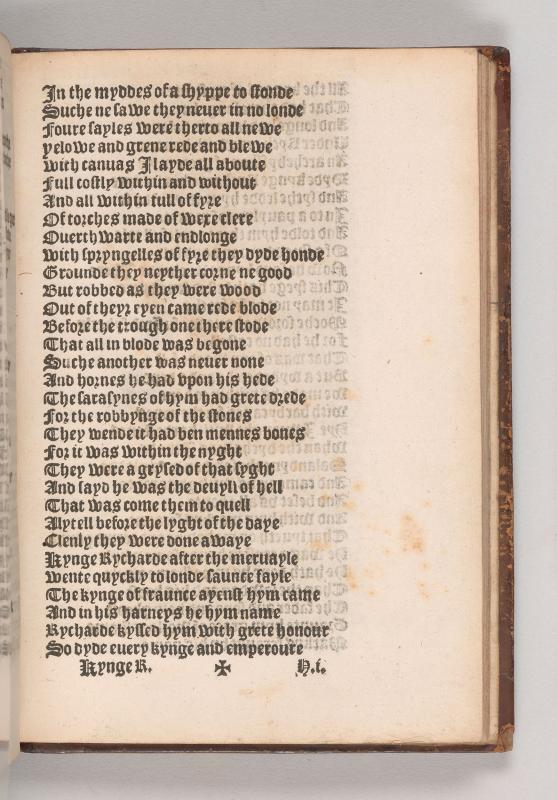 In the myddes of a shyppe to stonde
Suche ne sawe they neuer in no londe
Foure sayles were therto all newe
yelowe and grene rede and blewe
with canuas I layde all aboute
Full costly within and without
And all within full of fyre
Of torches made of wexe clere
Ouerthwarte and endlonge
with spryngelles of fyre they dyde honde
Grounde they neyther corne ne good
But robbed as they were wood
Out of theyr eyen came rede blode
Before the trough one there stode
That all in blode was begone
Suche another was neuer none
And hornes he had vpon his hede
The sarasynes of hym had grete drede
For the robbynge of the stones
They wende it had ben mennes bones
For it was within the nyght
They were a grysed of that syght
And sayd he was the deuyll of hell
That was come them to quell
Alytell before the lyght of the daye
Clenly they were done awaye
Kynge Rycharde after the meruayle
wente quyckly to londe saunce fayle
The kynge of fraunce ayenst hym came
And in his harneys he hym name
Rycharde kyssed hym with grete honour
So dyde euery kynge and emperoure
Kynge R. ✠ H.i.